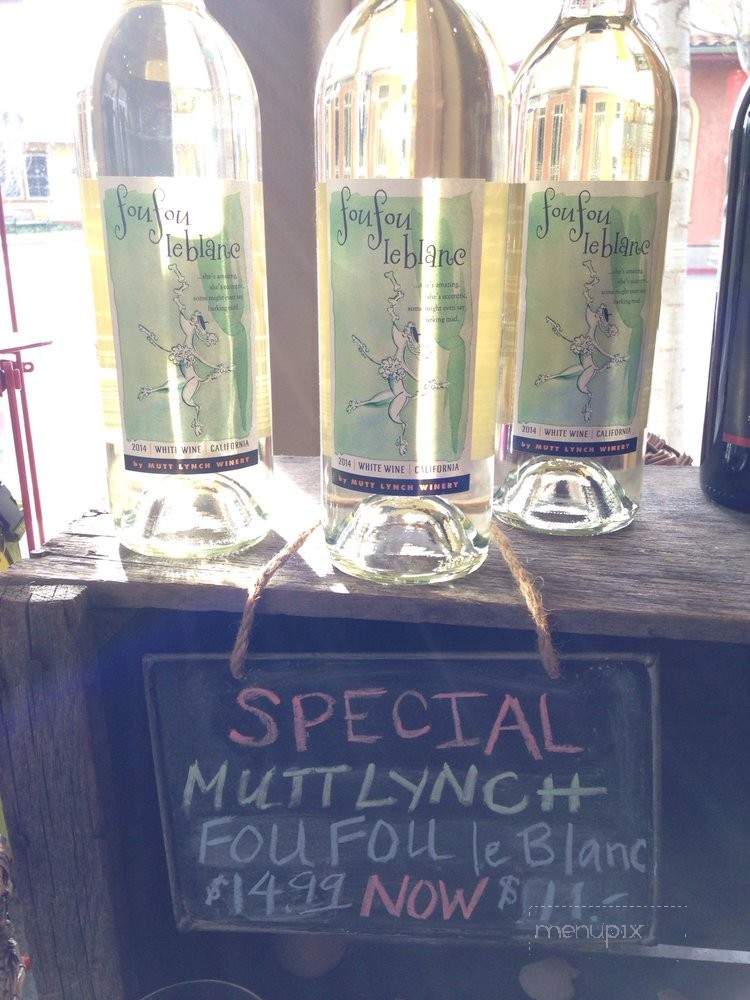 foufou
le blanc
...she's amazing,
she's eccentric,
some might even say
barking mad.
2014 | WHITE WINE | CALIFORNIA
by MUTT LYNCH WINERY
foufou
le blanc
...she's amazing,
she's eccentric,
some might even say
barking mad.
2014 | WHITE WINE | CALIFORNIA
by MUTT LYNCH WINERY
foufou
le blanc
...she's amazing,
she's eccentric,
some might even say
barking mad.
2014 | WHITE WINE | CALIFORNIA
by MUTT LYNCH WINERY
SPECIAL
MUTT LYNCH
FOU FOU le Blanc
$14.99 NOW $11.-
menupix